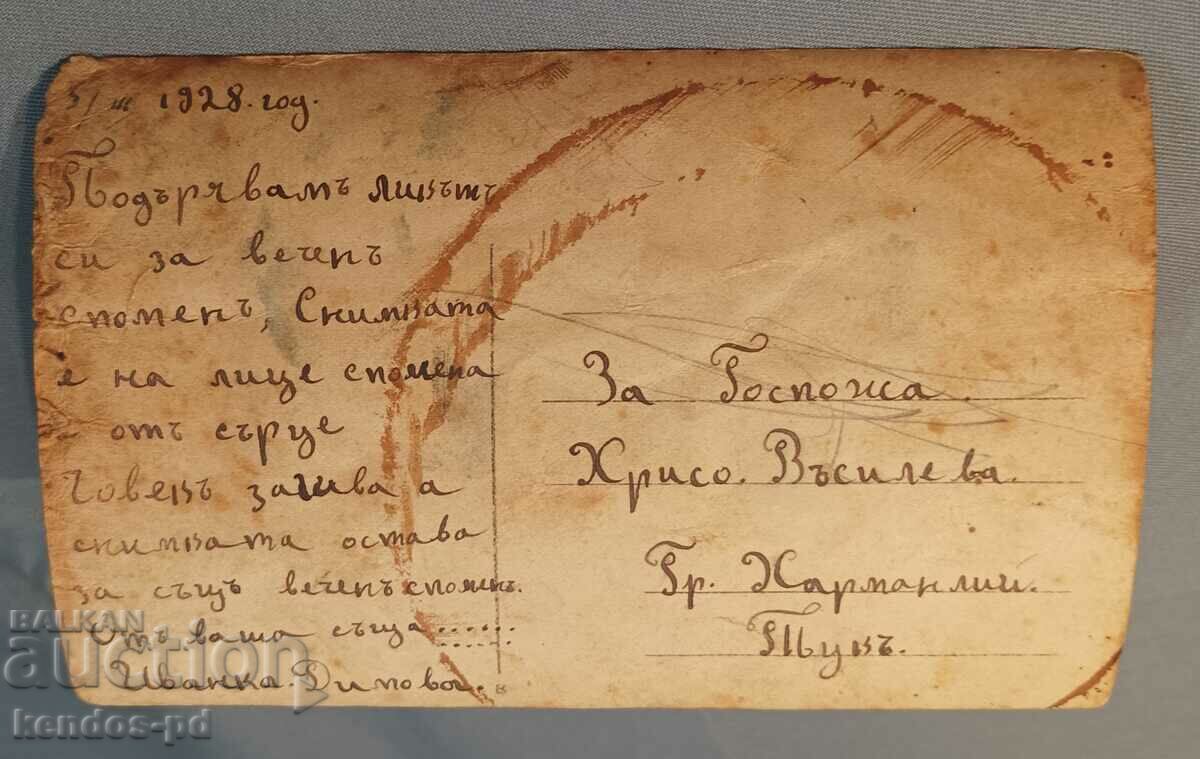 5/III 1928. год.
Подърявамъ ликътъ
си за вечень
споменъ, Снимката
е на лице спомена
- отъ сърце
Човекъ загива а
снимката остава
за същъ вечень споменъ.
Отъ ваша съща......
Иванка Димова.
За Госпожа.
Хрисо. Въсилева.
Гр. Харманлий.
Тукъ.
BALKAN
auction
kendos-pd